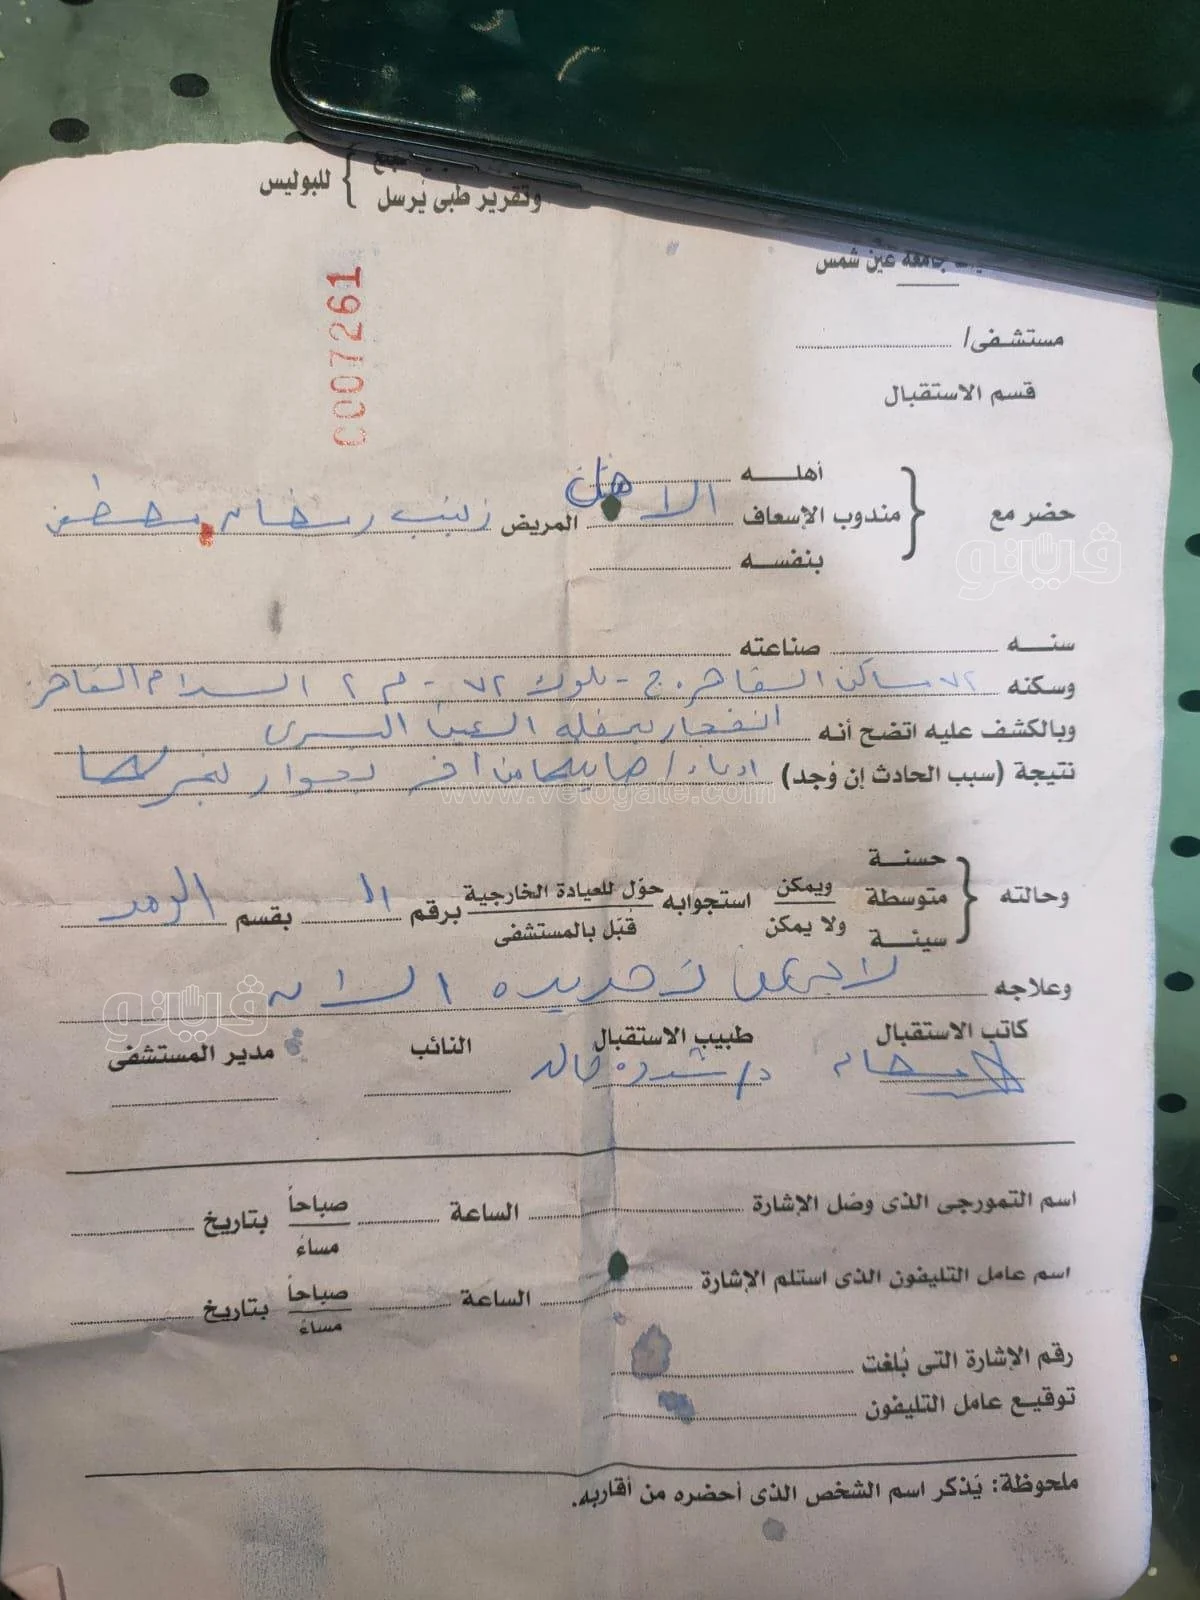 وتقرير طبى يُرسل } للبوليس
جامعة عين شمس
0007261
مستشفى/
قسم الاستقبال
حضر مع
أهله
مندوب الإسعاف الاهل المريض زينب رمضان مصطفى
بنفسه
سنه صناعته
وسكنه ٧٢ مساكن القاهرة بلوك ٧٢ - م ٢ السلام القاهرة
وبالكشف عليه اتضح أنه انفجار بمقلة العين اليسرى
نتيجة (سبب الحادث إن وُجد) ادعاء/ من آخر
www.vetogate.com
وحالته
حسنة
متوسطة
سيئة
ويمكن
ولا يمكن
استجوابه
حوّل للعيادة الخارجية
قبّل بالمستشفى
برقم بقسم الرمد
وعلاجه لا يمكن تحديده الان
كاتب الاستقبال طبيب الاستقبال النائب مدير المستشفى
د/ خالد
اسم التمورجى الذى وصّل الإشارة الساعة صباحاً بتاريخ
مساءً
اسم عامل التليفون الذى استلم الإشارة الساعة صباحاً بتاريخ
مساءً
رقم الإشارة التى بُلغت
توقيع عامل التليفون
ملحوظة: يَذكر اسم الشخص الذى أحضره من أقاربه.
ڤيتو
ڤيتو